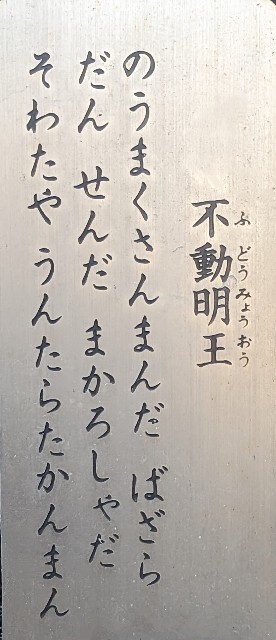 不動明王
ふどうみょうおう
のうまくさんまんだ ばざら
だん せんだ まかろしゃだ
そわたや うんたらたかんまん